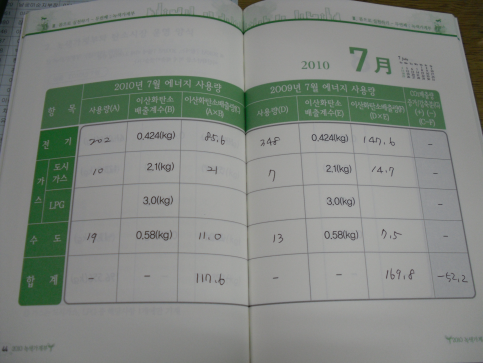 2010 7月
2010년 7월 에너지 사용량
2009년 7월 에너지 사용량
항 목 사용량(A) 이산화탄소 배출계수(B) 이산화탄소배출량(C) (A×B) 사용량(D) 이산화탄소 배출계수(E) 이산화탄소배출량(F) (D×E) (+) (-) (C-F)
전 기 202 0.424(kg) 85.6 348 0.424(kg) 147.6 -
가스 도시가스 10 2.1(kg) 21 7 2.1(kg) 14.7 -
LPG 3.0(kg) 3.0(kg) -
수 도 19 0.58(kg) 11.0 13 0.58(kg) 7.5 -
합 계 - - 117.6 - - 169.8 -52.2